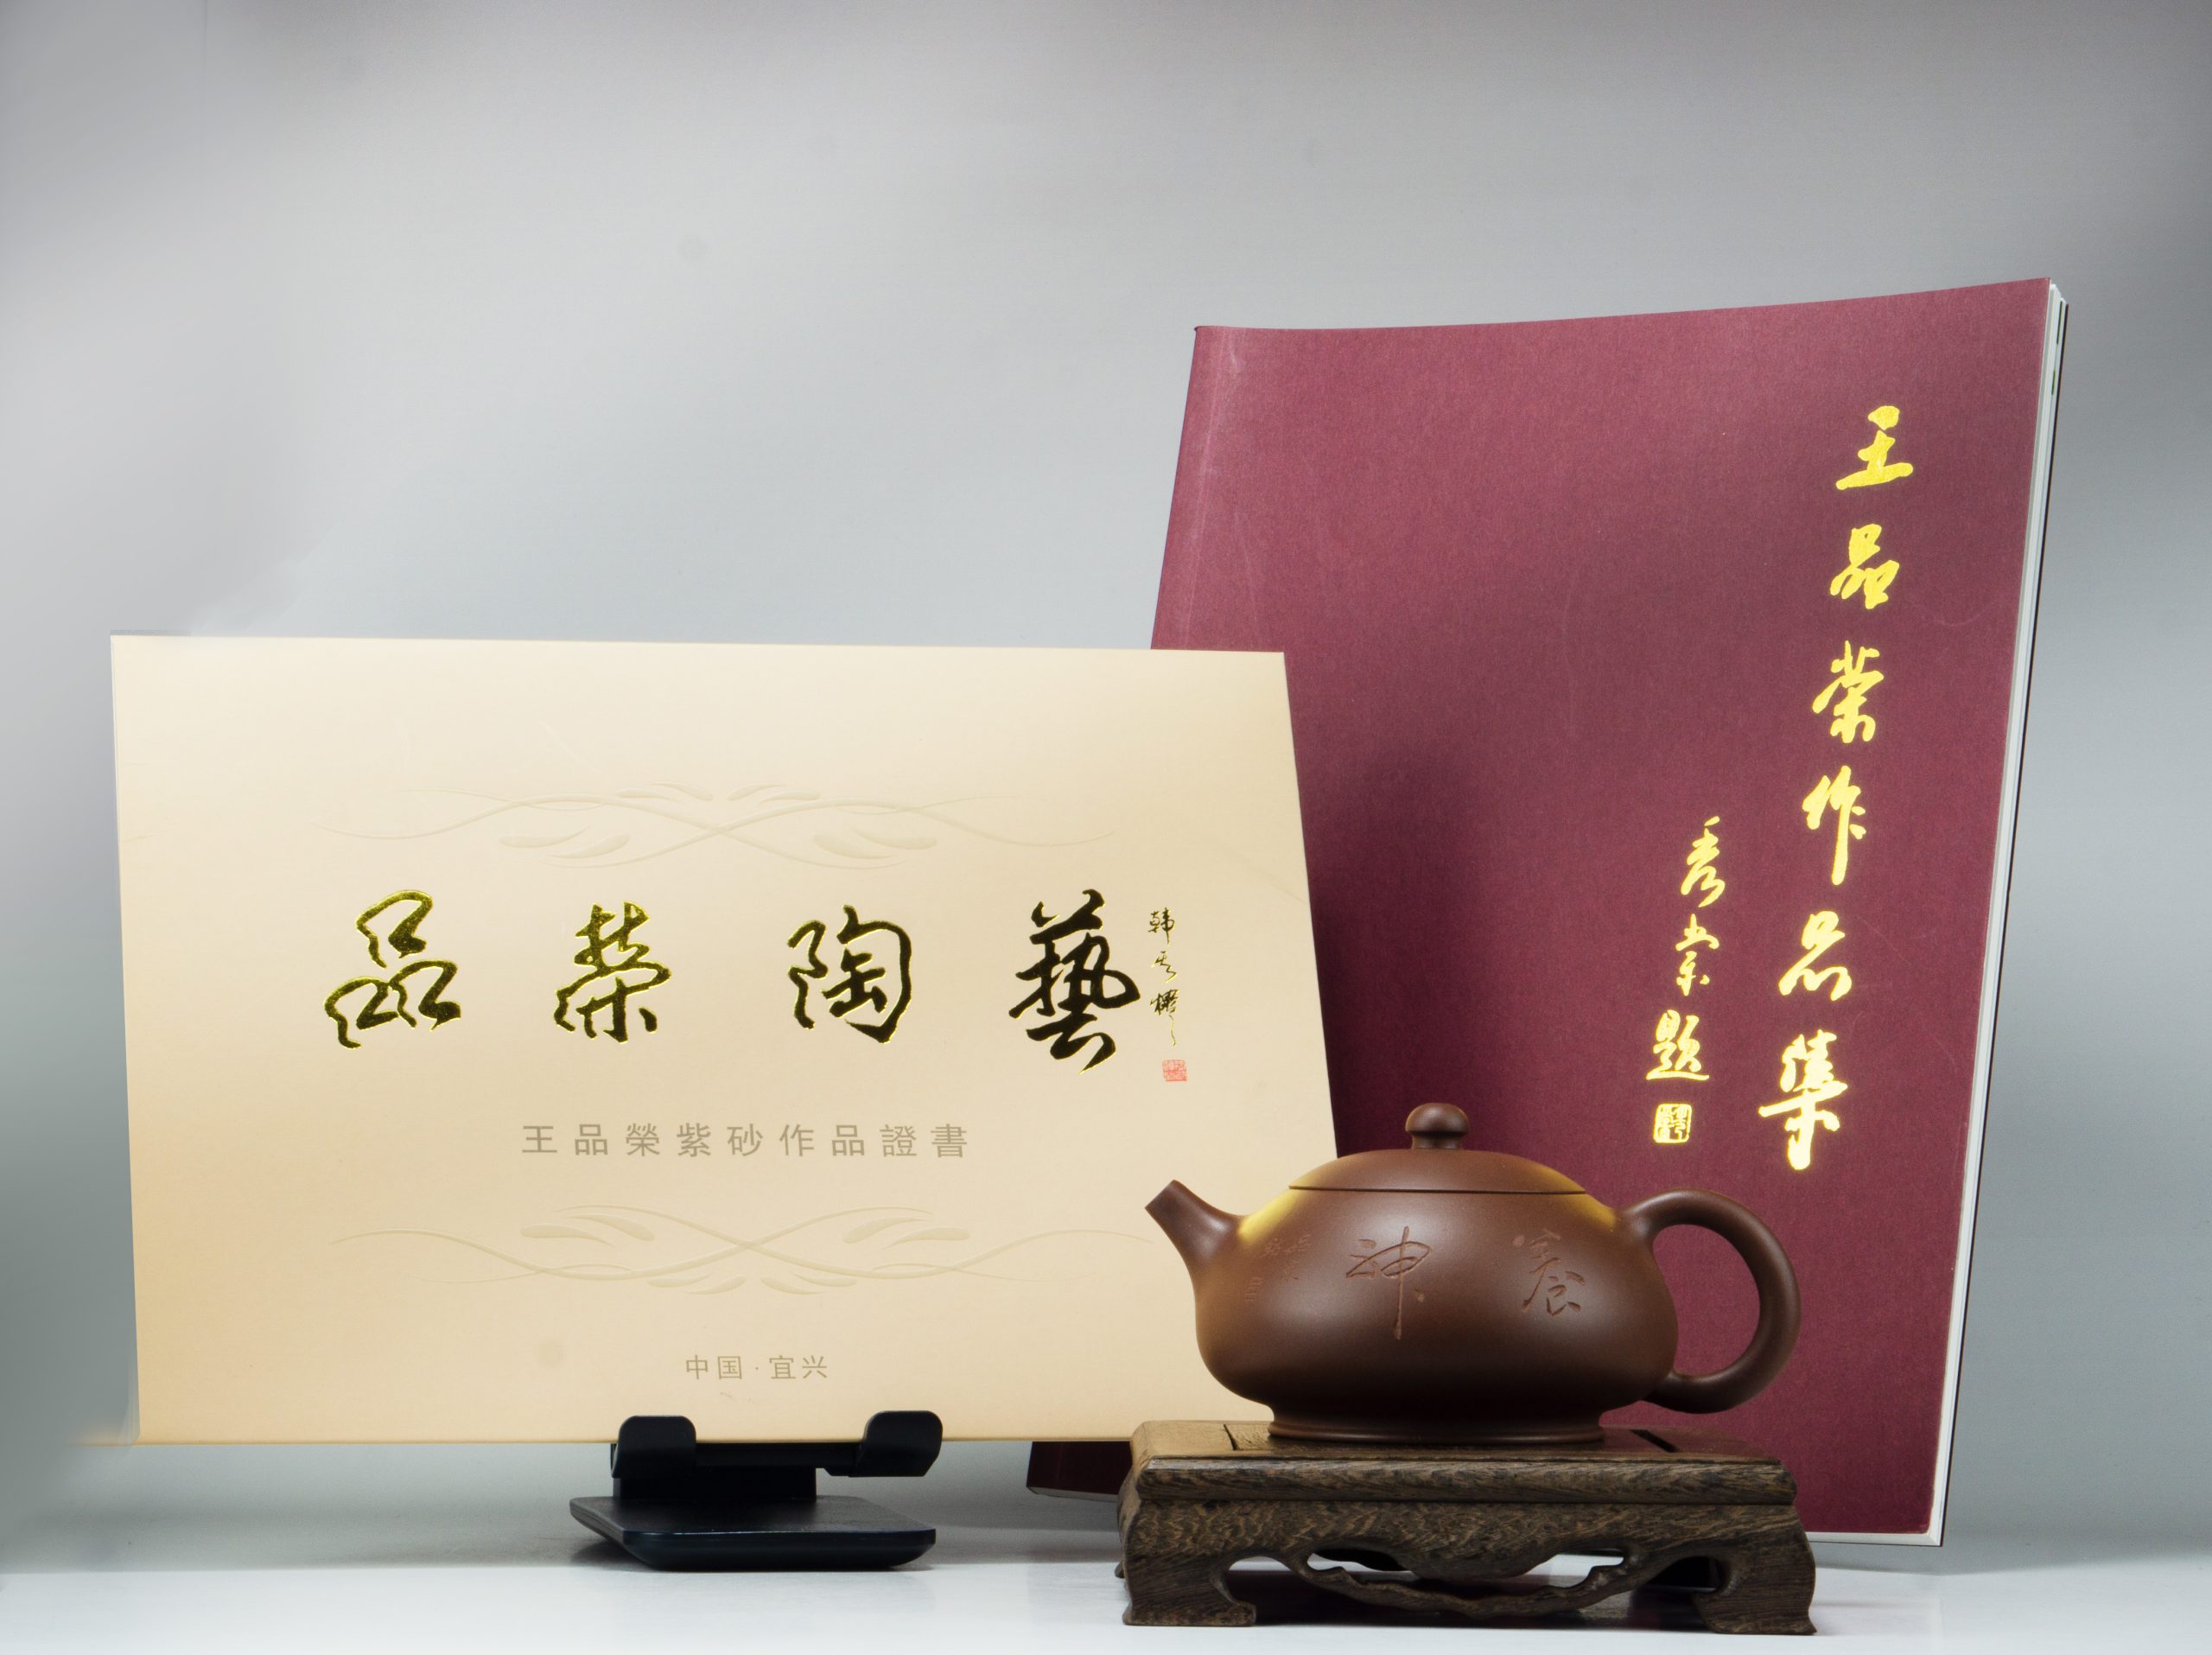 品榮陶藝
王品榮紫砂作品證書
中国·宜兴
王品荣作品集
秀棠题
养神